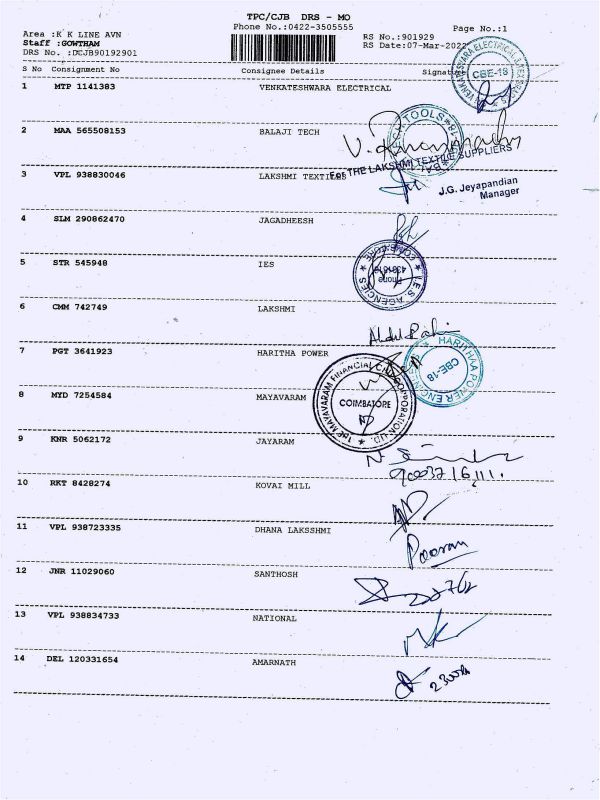 TPC/CJB DRS - MO
Phone No.:0422-3505555
Page No.:1
Area :K K LINE AVN
RS No.:901929
Staff :GOWTHAM
RS Date:07-Mar-2022
DRS No. :DCJB90192901
S No Consignment No Consignee Details Signature
VENKATESHWARA ELECTRICAL
CBE-18
1 MTP 1141383 VENKATESHWARA ELECTRICAL
TOOLS
2 MAA 565508153 BALAJI TECH
For THE LAKSHMI TEXTILE SUPPLIERS
3 VPL 938830046 LAKSHMI TEXTILES
J.G. Jeyapandian
Manager
4 SLM 290862470 JAGADHEESH
COIMBATORE
Phone
I.E.S. AGENCIES
5 STR 545948 IES
6 CMM 742749 LAKSHMI
Abdul
HARITHAA POWER ENGINEERS
CBE-18
7 PGT 3641923 HARITHA POWER
THE MAYAVARAM FINANCIAL CORPORATION LTD.
COIMBATORE
8 MYD 7254584 MAYAVARAM
9 KNR 5062172 JAYARAM
10 RKT 8428274 KOVAI MILL
11 VPL 938723335 DHANA LAKSSHMI
Pooran
12 JNR 11029060 SANTHOSH
13 VPL 938834733 NATIONAL
14 DEL 120331654 AMARNATH